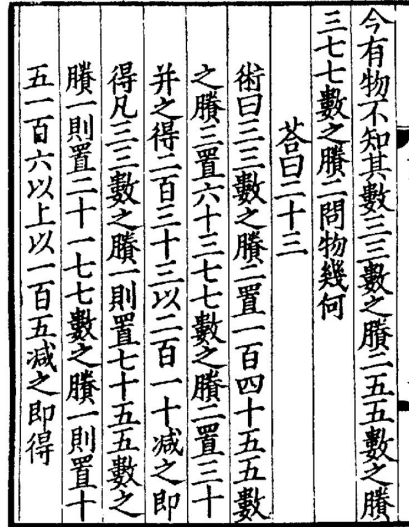 今有物不知其數三三數之賸二五五數之賸
三七七數之賸二問物幾何
荅曰二十三
術曰三三數之賸二置一百四十五五數
之賸三置六十三七七數之賸二置三十
并之得二百三十三以二百一十減之即
得凡三三數之賸一則置七十五五數之
賸一則置二十一七七數之賸一則置十
五一百六以上以一百五減之即得